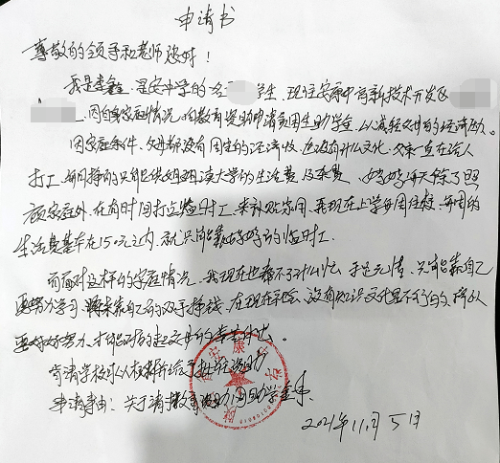 申请书
尊敬的领导和老师您好！
我是李鑫，是安中学的 学生，现住安康市高新技术开发区
因自身家庭情况，向教育资助申请贫困生助学金，以减轻父母的经济压力。
因家庭条件，父母都没有固定的经济收入，也没有什么文化，父亲一直在给人
打工，每月挣的只能供姐姐读大学的生活费及学费，妈妈每天除了照
顾家庭外，在有时间打点临时工，来补贴家用，我现在上学每周住校，每周的
生活费基本在150元之内，就只能靠妈妈的临时工。
而面对这样的家庭情况，我现在也帮不了什么忙，手足无措，只能靠自己
要努力学习，将来靠自己的双手挣钱，在现在社会，没有知识文化是不行的，所以
要好好努力，才能对的起父母的辛苦付出。
申请学校可以核实并给予 资助
申请事由：关于请教育资助 助学金
2021年11月5日